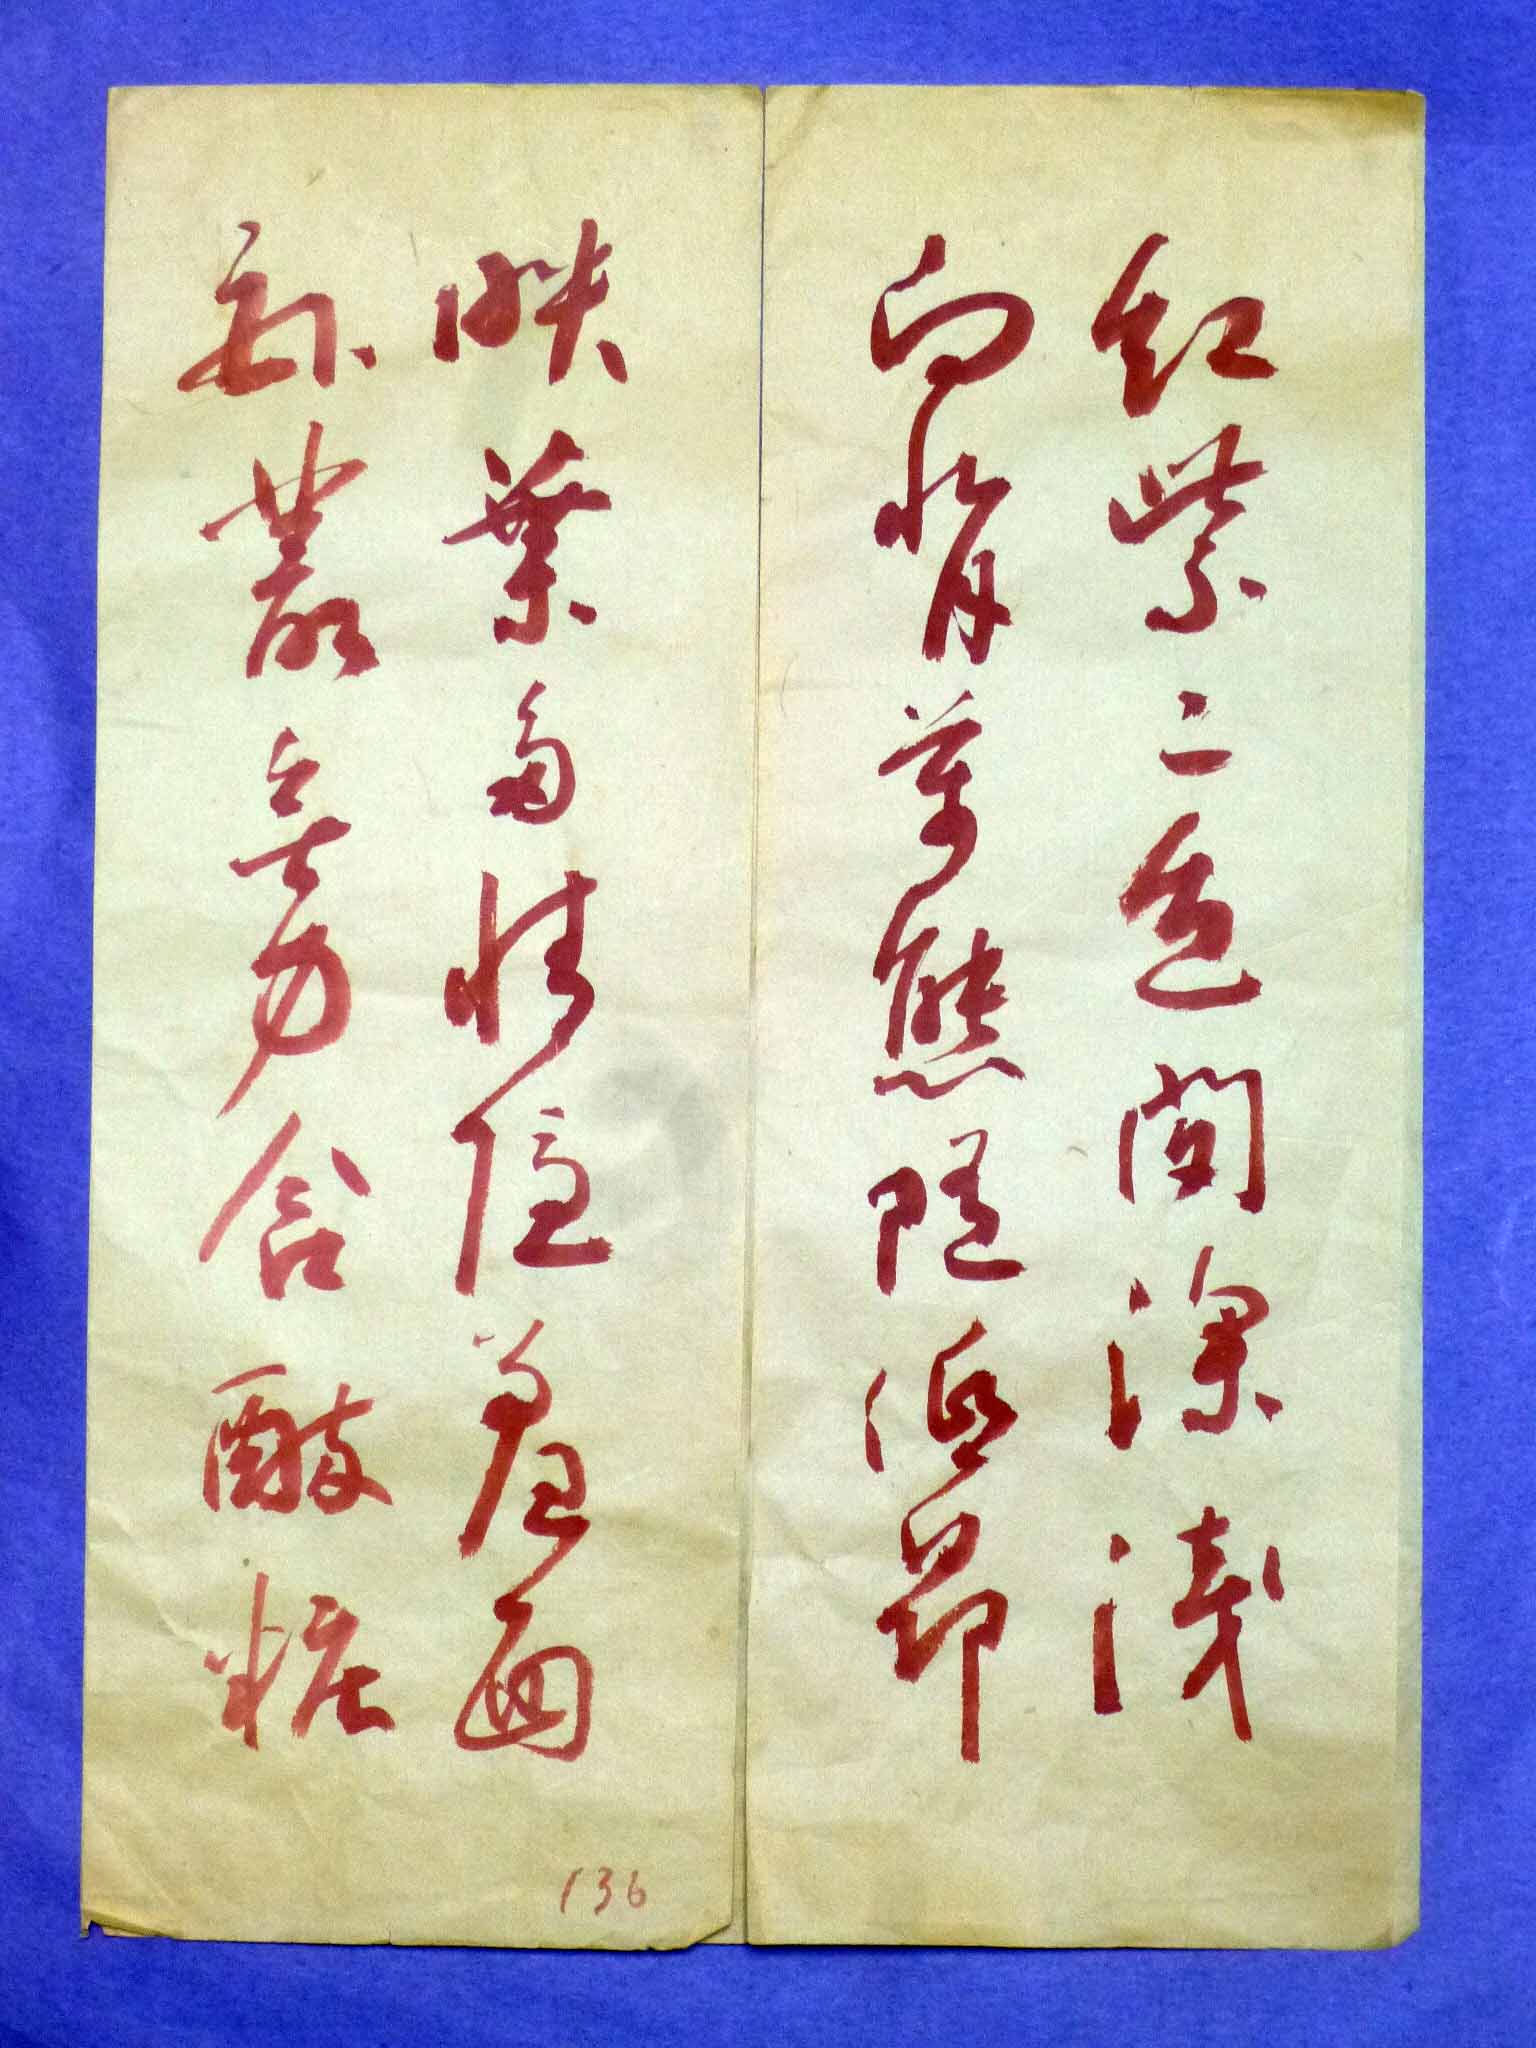 紅紫二色間深淺
向背萬態隨低昂
映葉多情隱羞面
卧叢無力含醉粧
136